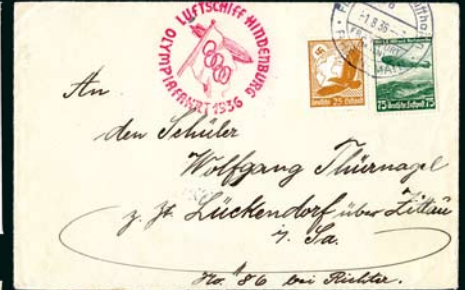 LUFTSCHIFF HINDENBURG
OLYMPIAFAHRT 1936
-1.8.36
FRANKFURT
MAIN
Deutsche 25 Luftpost
75 Deutsche Luftpost 75
An
den Schüler
Wolfgang Thürnagel
z. Zt. Lückendorf über Zittau
i. Sa.
No. 86 bei Richter.